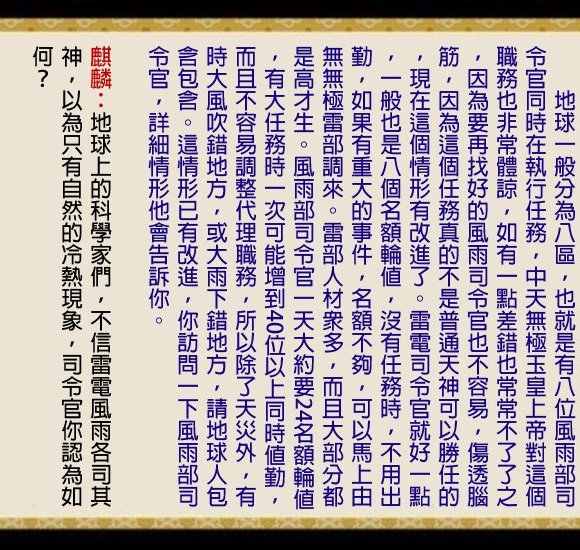 地球一般分為八區，也就是有八位風雨部司
令官同時在執行任務，中天無極玉皇上帝對這個
職務也非常體諒，如有一點差錯也常常不了了之
，因為要再找好的風雨司令官也不容易，傷透腦
筋，因為這個任務真的不是普通天神可以勝任的
，現在這個情形有改進了。雷電司令官就好一點
，一般也是八個名額輪值，沒有任務時，不用出
勤，如果有重大的事件，名額不夠，可以馬上由
無無極雷部調來。雷部人材衆多，而且大部分都
是高才生。風雨部司令官一天大約要24名額輪值
，有大任務時一次可能增到40位以上同時值勤，
而且不容易調整代理職務，所以除了天災外，有
時大風吹錯地方，或大雨下錯地方，請地球人包
含包含。這情形已有改進，你訪問一下風雨部司
令官，詳細情形他會告訴你。
麒麟：地球上的科學家們，不信雷電風雨各司其
神，以為只有自然的冷熱現象，司令官你認為如
何？